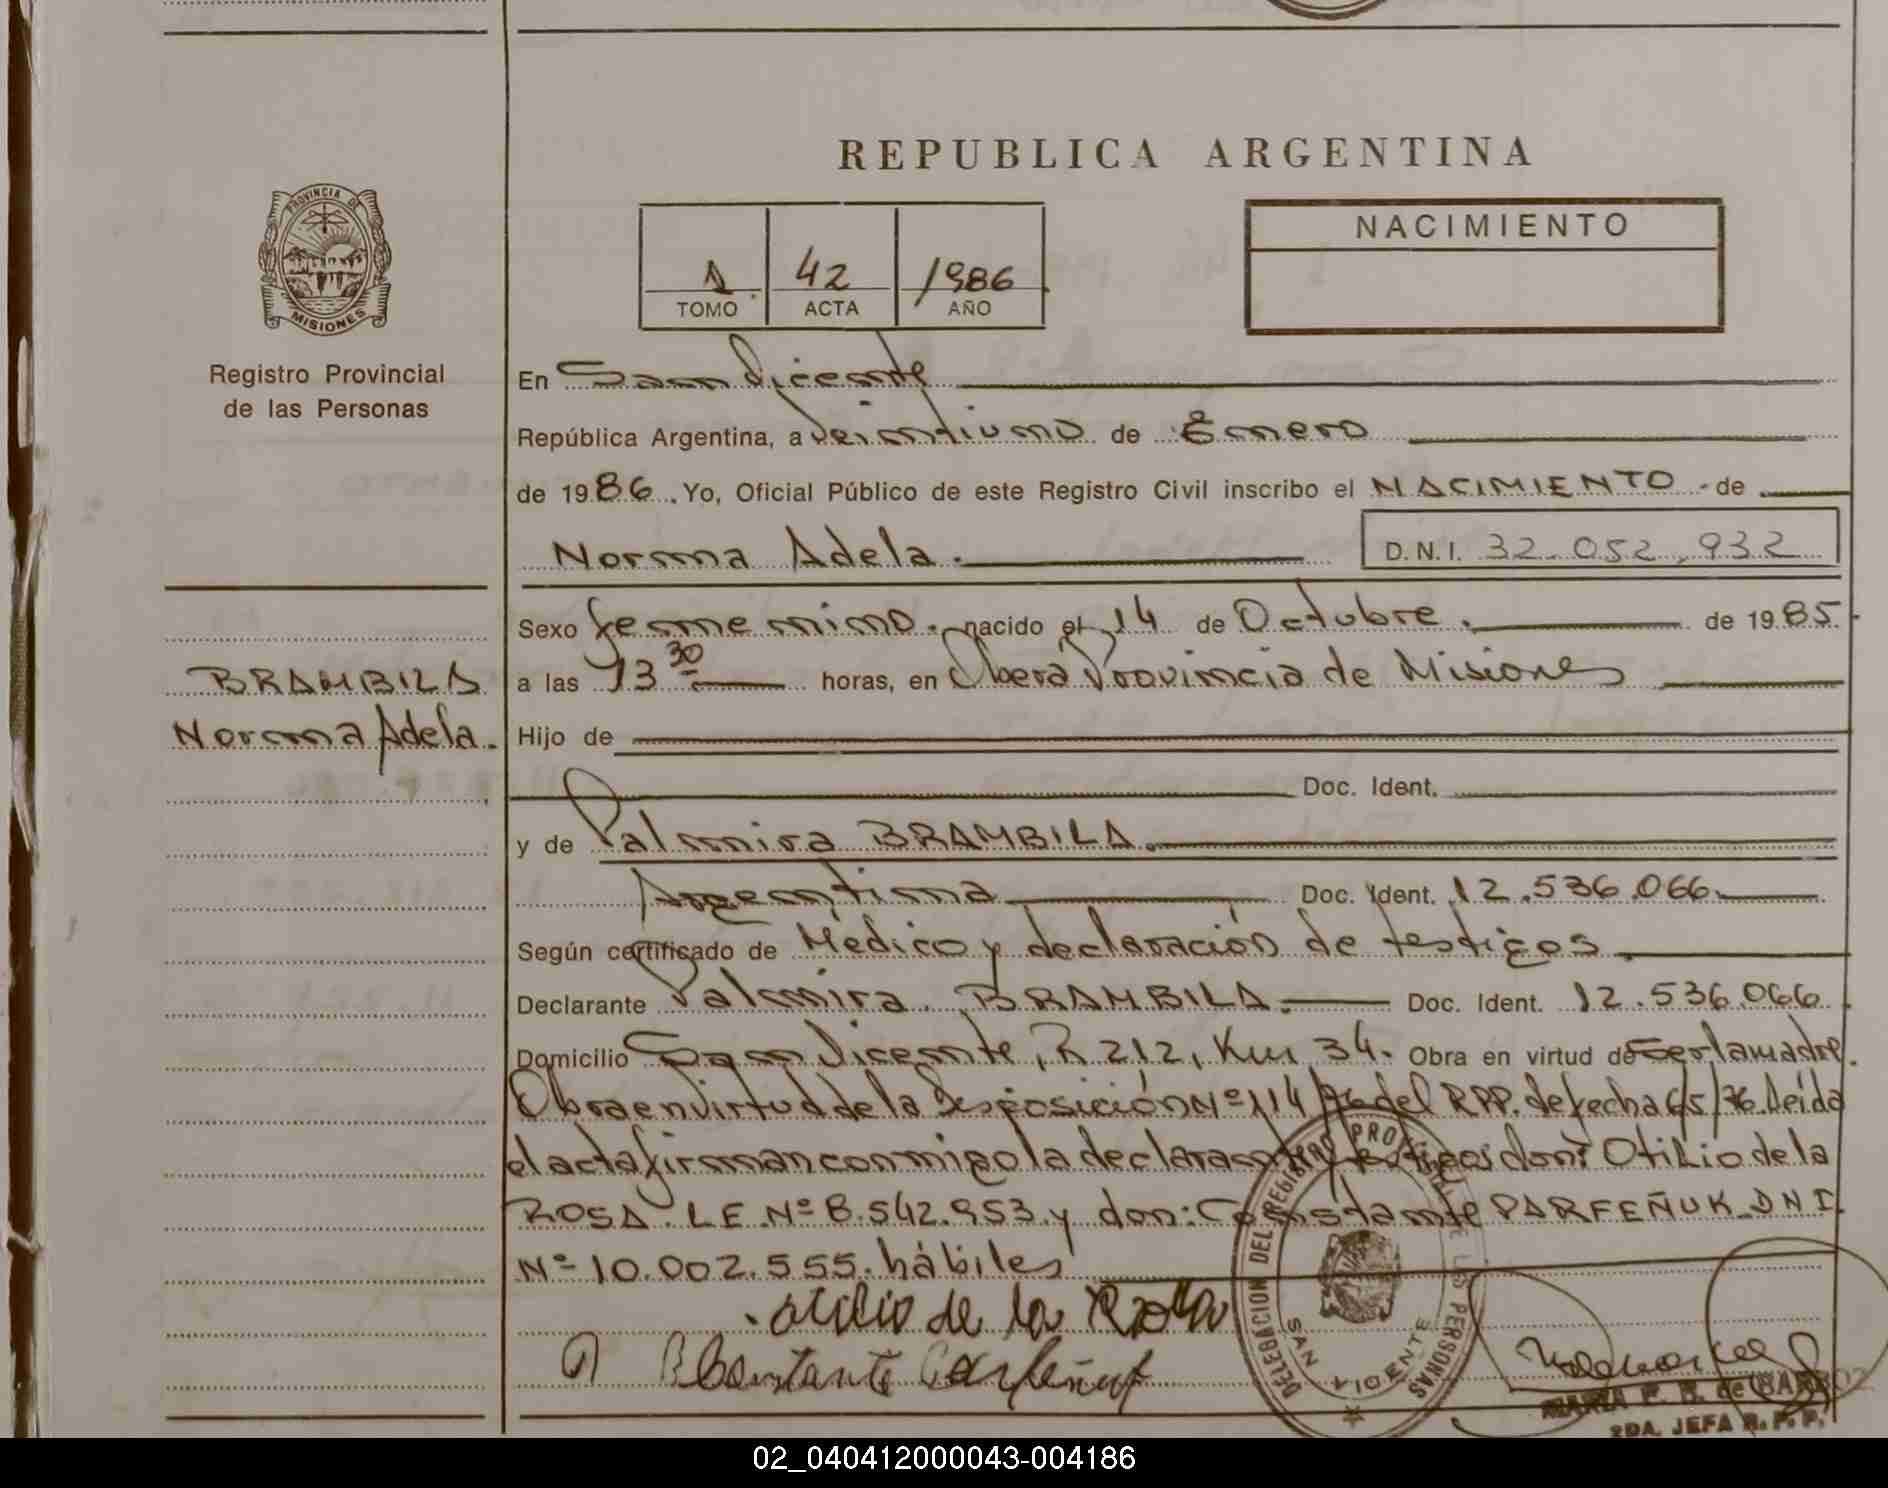 REPUBLICA ARGENTINA
PROVINCIA DE
MISIONES
Registro Provincial
de las Personas
1 42 1986
TOMO ACTA AÑO
NACIMIENTO
En San Vicente
República Argentina, a Veintiuno de Enero
de 1986. Yo, Oficial Público de este Registro Civil inscribo el NACIMIENTO de
Norma Adela. D.N.I. 32.052.932
Sexo femenino. nacido el 14 de Octubre. de 1985.
a las 13 30 horas, en Obera Provincia de Misiones
BRAMBILA
Norma Adela.
Hijo de
Doc. Ident.
y de Palmira BRAMBILA.
Argentina Doc. Ident. 12.536.066
Según certificado de Medico y declaración de testigos
Declarante Palmira BRAMBILA. Doc. Ident. 12.536.066
Domicilio San Vicente, R 212, Km 34. Obra en virtud de Ser la madre.
Obra en virtud de la Disposición Nº 114/76 del RPP. de fecha 6/5/76. Leída
el acta firman conmigo la declarante y testigos don: Otilio de la
ROSA. L.E. Nº 8.542.953. y don: Constante PARFEÑUK DNI.
Nº 10.002.555. hábiles
Otilio de la Rosa
P B Constante Parfeñuk
DELEGACION DEL REGISTRO PROVINCIAL DE LAS PERSONAS
SAN VICENTE
MARIA F. B. de
2DA. JEFA R. P. P.
02_040412000043-004186